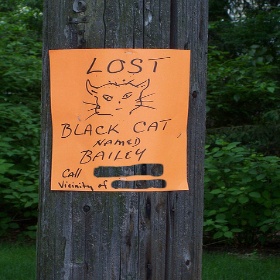 LOST
BLACK CAT
NAMED
BAILEY
Call
Vicinity of